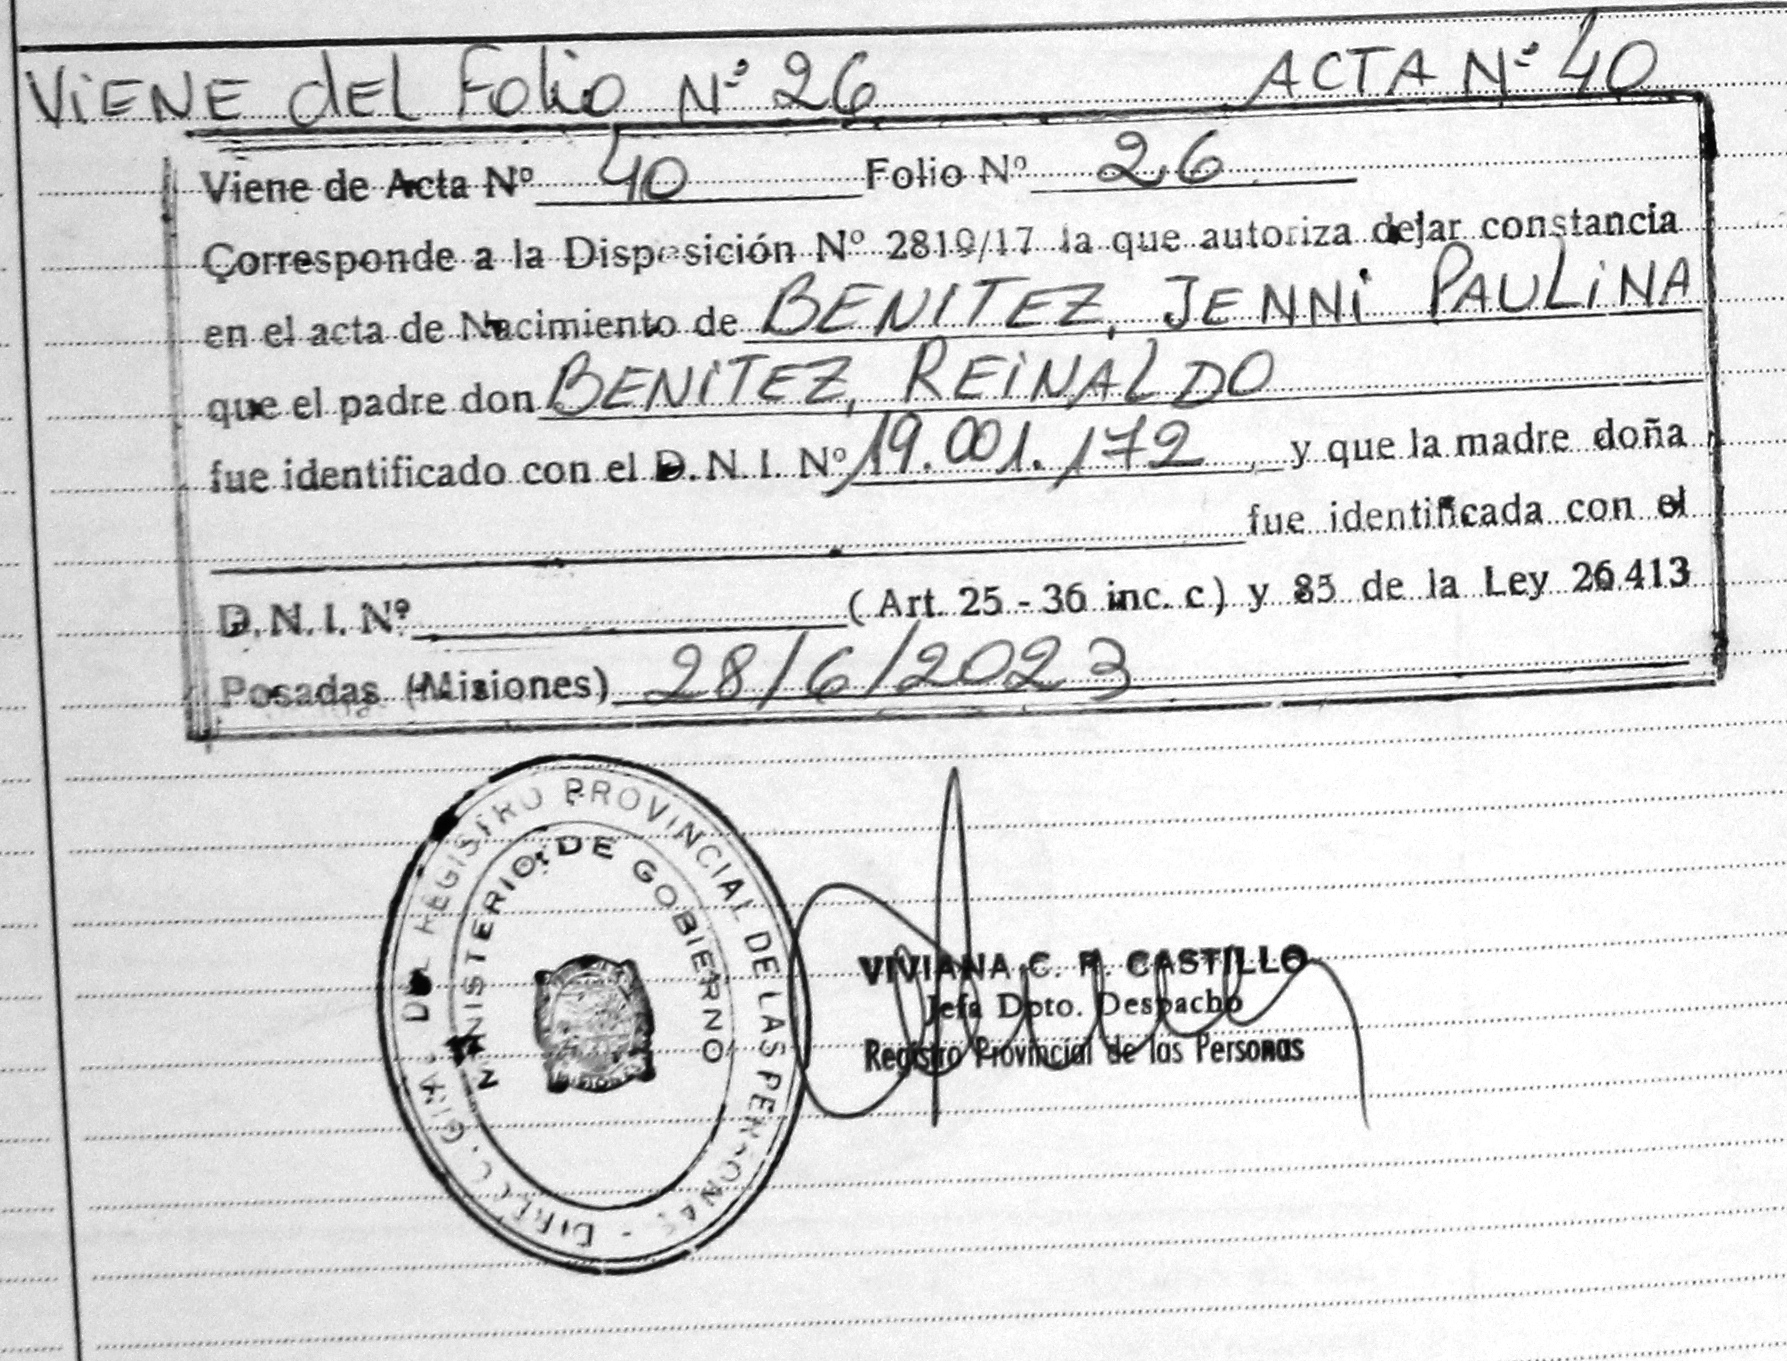 ViENE dEL FoLio Nº 26 ACTA Nº 40
Viene de Acta Nº 40 Folio Nº 26
Corresponde a la Disposición Nº 2819/17 la que autoriza dejar constancia
en el acta de Nacimiento de BENITEZ, JENNi PAULiNA
que el padre don BENiTEZ, REiNALDO
fue identificado con el D.N.I. Nº 19.001.172, y que la madre doña
fue identificada con el
D.N.I. Nº (Art. 25 - 36 inc. c) y 85 de la Ley 26.413
Posadas (Misiones) 28/6/2023
DIRECC. GRAL. DEL REGISTRO PROVINCIAL DE LAS PERSONAS -
MINISTERIO DE GOBIERNO
VIVIANA C. R. CASTILLO
Jefa Dpto. Despacho
Registro Provincial de las Personas